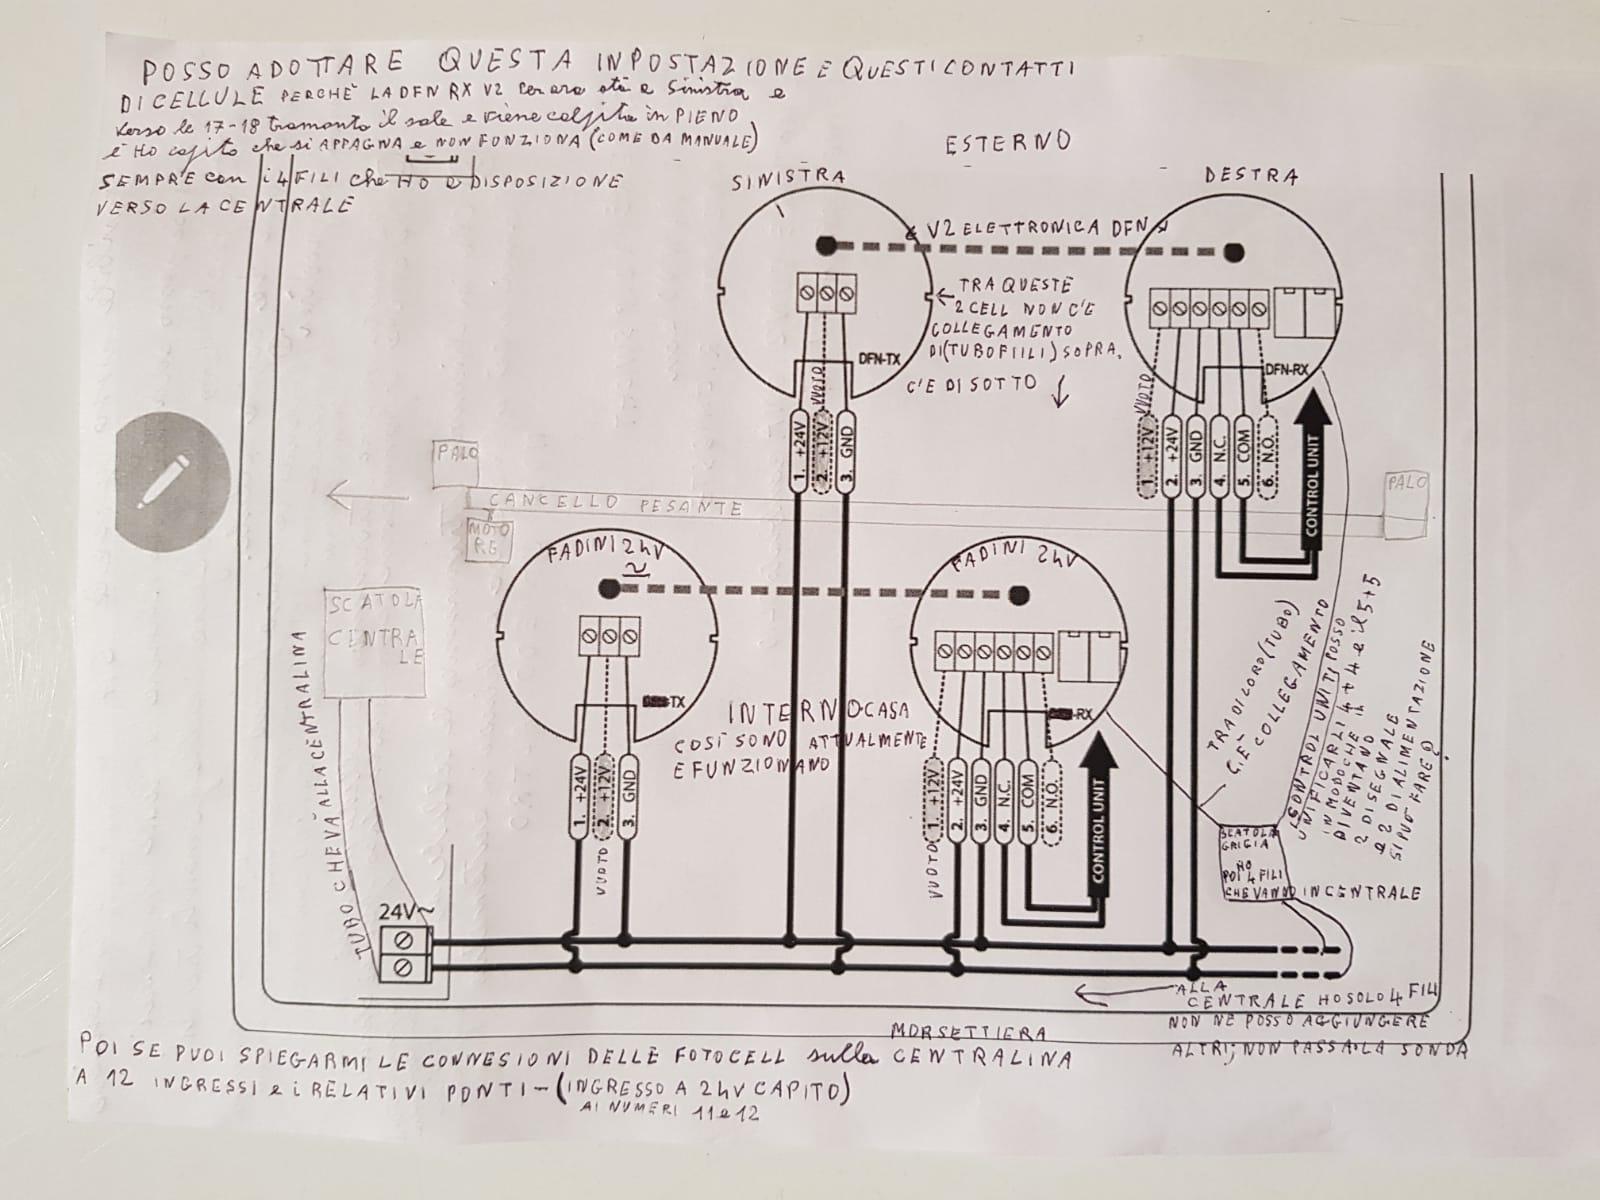 POSSO ADOTTARE QUESTA INPOSTAZIONE E QUESTI CONTATTI
DI CELLULE PERCHÈ LA DFN RX V2 sta a sinistra e
verso le 17-18 tramonto il sole e viene colpita in PIENO
e HO capito che si APPAGNA e NON FUNZIONA (COME DA MANUALE)
SEMPRE con i 4 FILI che HO a DISPOSIZIONE
VERSO LA CENTRALE
ESTERNO
SINISTRA
DESTRA
V2 ELETTRONICA DFN
TRA QUESTE
2 CELL NON C'E
COLLEGAMENTO
DI (TUBO FIILI) SOPRA,
C'E DI SOTTO
DFN-TX
DFN-RX
VUOTO
VUOTO
1. +24V
2. +12V
3. GND
1. +12V
2. +24V
3. GND
4. N.C.
5. COM
6. N.O.
CONTROL UNIT
PALO
CANCELLO PESANTE
PALO
MOTO
RE
FADINI 24V
FADINI 24V
SCATOLA
CENTRA
LE
TUBO CHE VÀ ALLA CENTRALINA
TX
-RX
INTERNO CASA
COSÌ SONO ATTUALMENTE
E FUNZIONANO
1. +24V
2. +12V
3. GND
VUOTO
1. +12V
2. +24V
3. GND
4. N.C.
5. COM
6. N.O.
VUOTO
CONTROL UNIT
TRA DI LORO (TUBO)
C'E COLLEGAMENTO
(CONTROL UNIT) POSSO
UNIFICARLI 4+4 e il 5+5
IN MODO CHE
DIVENTANO
2 DI SEGNALE
e 2 DI ALIMENTAZIONE
SI PUÒ FARE?
SCATOLA
GRIGIA
HO
POI 4 FILI
CHE VANNO IN CENTRALE
24V~
ALLA
CENTRALE HO SOLO 4 FILI
NON NE POSSO AGGIUNGERE
ALTRI; NON PASSA LA SONDA
MORSETTIERA
POI SE PUOI SPIEGARMI LE CONNESIONI DELLE FOTOCELL sulla CENTRALINA
A 12 INGRESSI e i RELATIVI PONTI - (INGRESSO A 24V CAPITO)
AI NUMERI 11 e 12